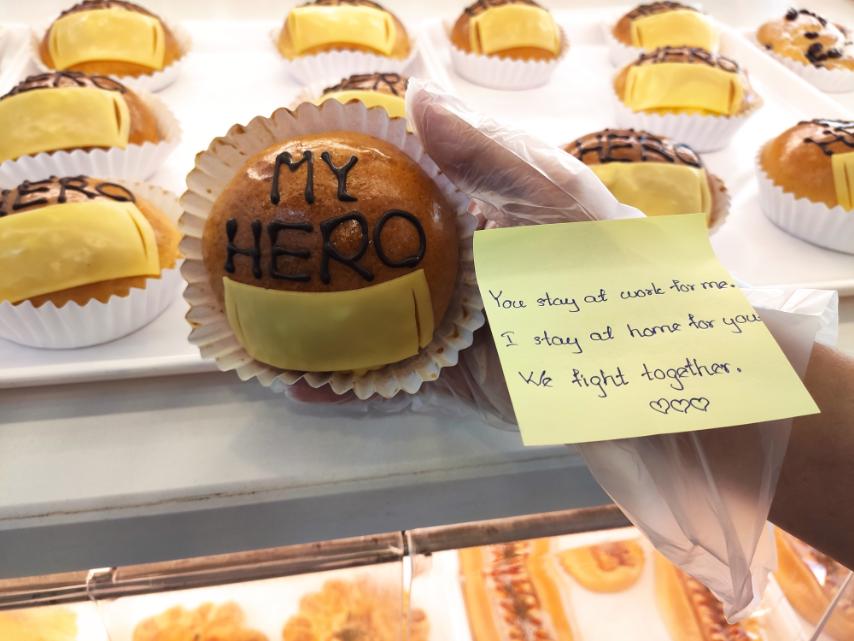 MY
HERO
You stay at work for me.
I stay at home for you
We fight together.
HERO
HERO